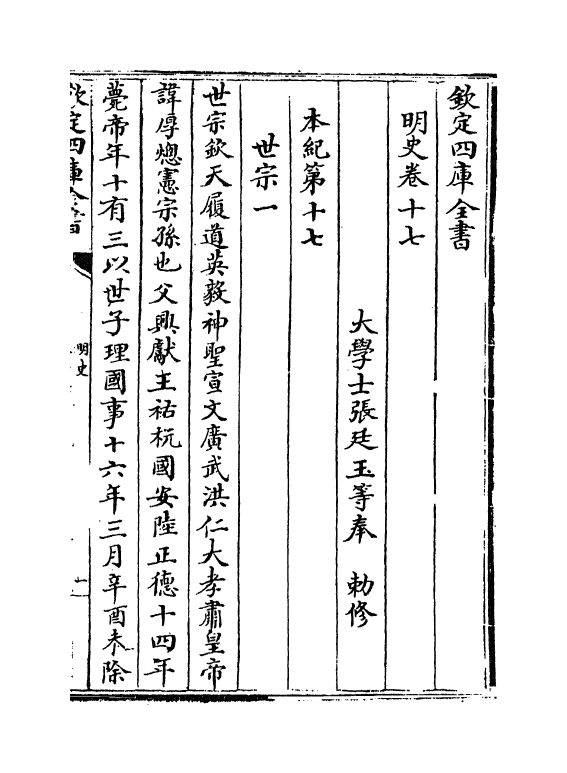 欽定四庫全書
明史卷十七
大學士張廷玉等奉　勅修
本紀第十七
世宗一
世宗欽天履道英毅神聖宣文廣武洪仁大孝肅皇帝
諱厚熜憲宗孫也父興獻王祐杬國安陸正德十四年
薨帝年十有三以世子理國事十六年三月辛酉未除
欽定四庫全書
明史